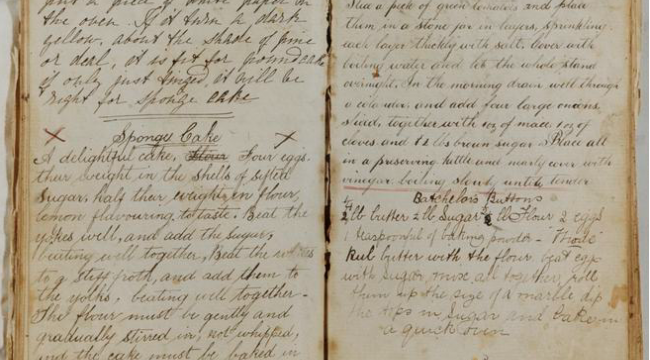 put a piece of white paper in
the oven. If it turn a dark
yellow, about the shade of pine
or deal, it is fit for pound cake
if only just tinged, it will be
right for Sponge cake
Sponge Cake
A delightful cake, Flour Four eggs.
their weight in the shells of sifted
Sugar, half their weight in flour
lemon flavouring, to taste. Beat the
yokes well, and add the sugar,
beating well together, Beat the whites
to a stiff froth, and add them to
the yolks, beating well together -
The flour must be gently and
gradually stirred in, not whipped,
and the cake must be baked in
Slice a peck of green tomatoes and place
them in a stone jar in layers, sprinkling
each layer thickly with salt. Cover with
boiling water and let the whole stand
overnight. In the morning drain well through
a colander, and add four large onions
sliced, together with 1 oz of mace, 1 oz of
cloves and lb brown sugar. Place all
in a preserving kettle and nearly cover with
vinegar boiling slowly until tender
Batchelors Buttons
lb butter lb Sugar lb Flour 2 eggs
1 teaspoonful of baking powder -
Rub butter with the flour, beat egg
with sugar, mix all together, roll
them up the size of a marble dip
the tops in Sugar and bake in
a quick oven